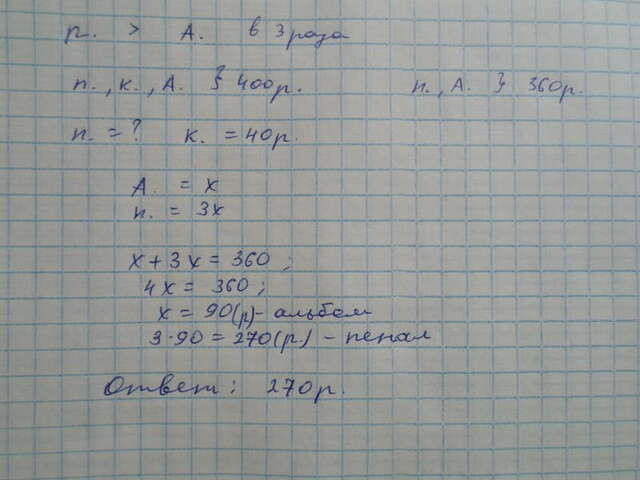 п. > А. в 3 раза
п., к., А. } 400р. п., А. } 360р.
п. = ? к. = 40р.
А. = х
п. = 3х
х + 3х = 360 ;
4х = 360 ;
х = 90(р) - альбом
3·90 = 270(р.) - пенал
Ответ : 270р.